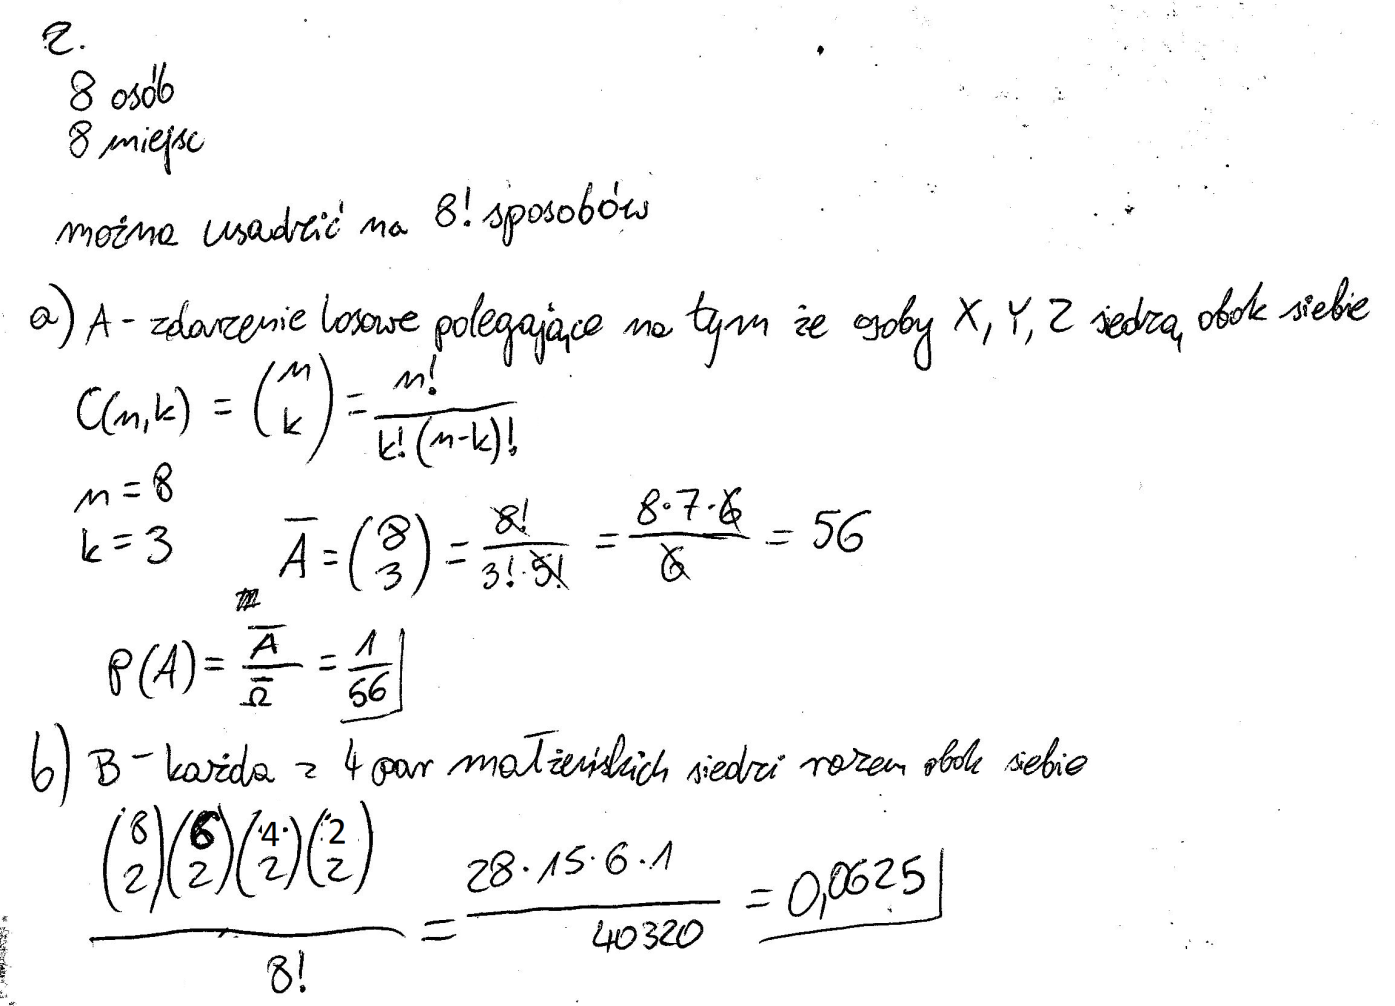 2.
8 osób
8 miejsc
można usadzić na 8! sposobów
a) A - zdarzenie losowe polegające na tym że osoby X, Y, Z siedzą obok siebie
C(n,k) = (n k) = n! / k!(n-k)!
n = 8
k = 3
A̅ = (8 3) = 8! / 3!·5! = 8·7·6 / 6 = 56
P(A) = A̅ / Ω̅ = 1 / 56
b) B - każda z 4 par małżeńskich siedzi razem obok siebie
(8 2)(6 2)(4 2)(2 2) / 8! = 28·15·6·1 / 40320 = 0,0625